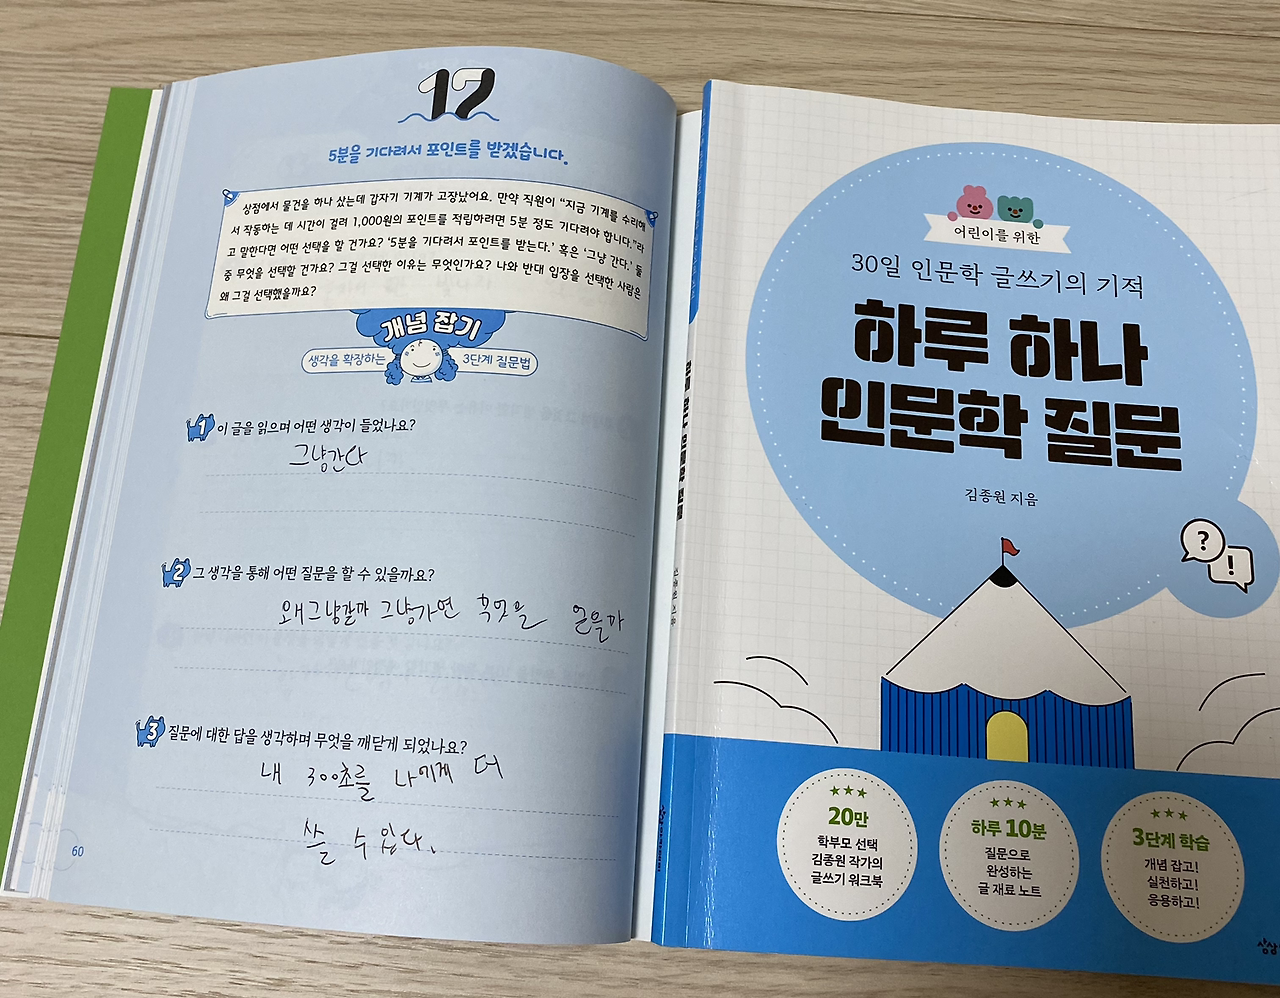 17
5분을 기다려서 포인트를 받겠습니다.
상점에서 물건을 하나 샀는데 갑자기 기계가 고장났어요. 만약 직원이 “지금 기계를 수리해
서 작동하는 데 시간이 걸려 1,000원의 포인트를 적립하려면 5분 정도 기다려야 합니다.”라
고 말한다면 어떤 선택을 할 건가요? ‘5분을 기다려서 포인트를 받는다.’ 혹은 ‘그냥 간다.’ 둘
중 무엇을 선택할 건가요? 그걸 선택한 이유는 무엇인가요? 나와 반대 입장을 선택한 사람은
왜 그걸 선택했을까요?
개념 잡기
생각을 확장하는 3단계 질문법
1 이 글을 읽으며 어떤 생각이 들었나요?
그냥간다
2 그 생각을 통해 어떤 질문을 할 수 있을까요?
왜그냥갈까 그냥가면 무엇을 얻을까
3 질문에 대한 답을 생각하며 무엇을 깨닫게 되었나요?
내 300초를 나에게 더
쓸 수 있다.
60
하루 하나 인문학 질문
김종원 지음
어린이를 위한
30일 인문학 글쓰기의 기적
하루 하나
인문학 질문
김종원 지음
?
!
20만
학부모 선택
김종원 작가의
글쓰기 워크북
하루 10분
질문으로
완성하는
글 재료 노트
3단계 학습
개념 잡고!
실천하고!
응용하고!